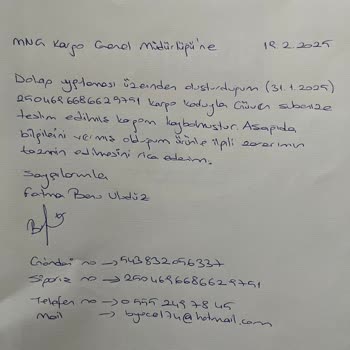 MNG Kargo Genel Müdürlüğü'ne 18.2.2025
Dolap uygulaması üzerinden oluşturduğum (31.1.2025)
2504696686629751 kargo koduyla Güven şubenize
teslim edilmiş kargom kaybolmuştur. Aşağıda
bilgilerini vermiş olduğum ürünle ilgili zararımın
tazmin edilmesini rica ederim.
Saygılarımla
Fatma Banu
Gönderi no → 543832056337
Sipariş no → 2504696686629751
Telefon no → 0555 249 78 45
Mail → @hotmail.com